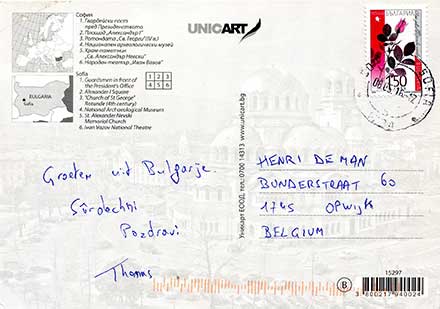 София
1. Гвардейски пост
пред Президентството
2. Площад „Александър I"
3. Ротондата „Св. Георги"(IV в.)
4. Национален археологически музей
5. Храм-паметник
„Св. Александър Невски"
6. Народен театър „Иван Вазов"
UNICART
БЪЛГАРИЯ
1.50
SOFIA
BULGARIA
Sofia
Sofia
1. Guardsmen in front of
the President's Office
2. Alexander I Square
3. "Church of St George"
Rotunda (4th century)
4. National Archeological Museum
5. St. Alexander Nevski
Memorial Church
6. Ivan Vazov National Theatre
1 2 3
4 5 6
Уникарт ЕООД, тел.: 0700 14313 www.unicart.bg
Groeten uit Bulgarije
Sürdachni
Pozdravi
Thomas
HENRI DE MAN
BUNDERSTRAAT 60
1745 OPWIJK
BELGIUM
B
15297
3 800217 940024